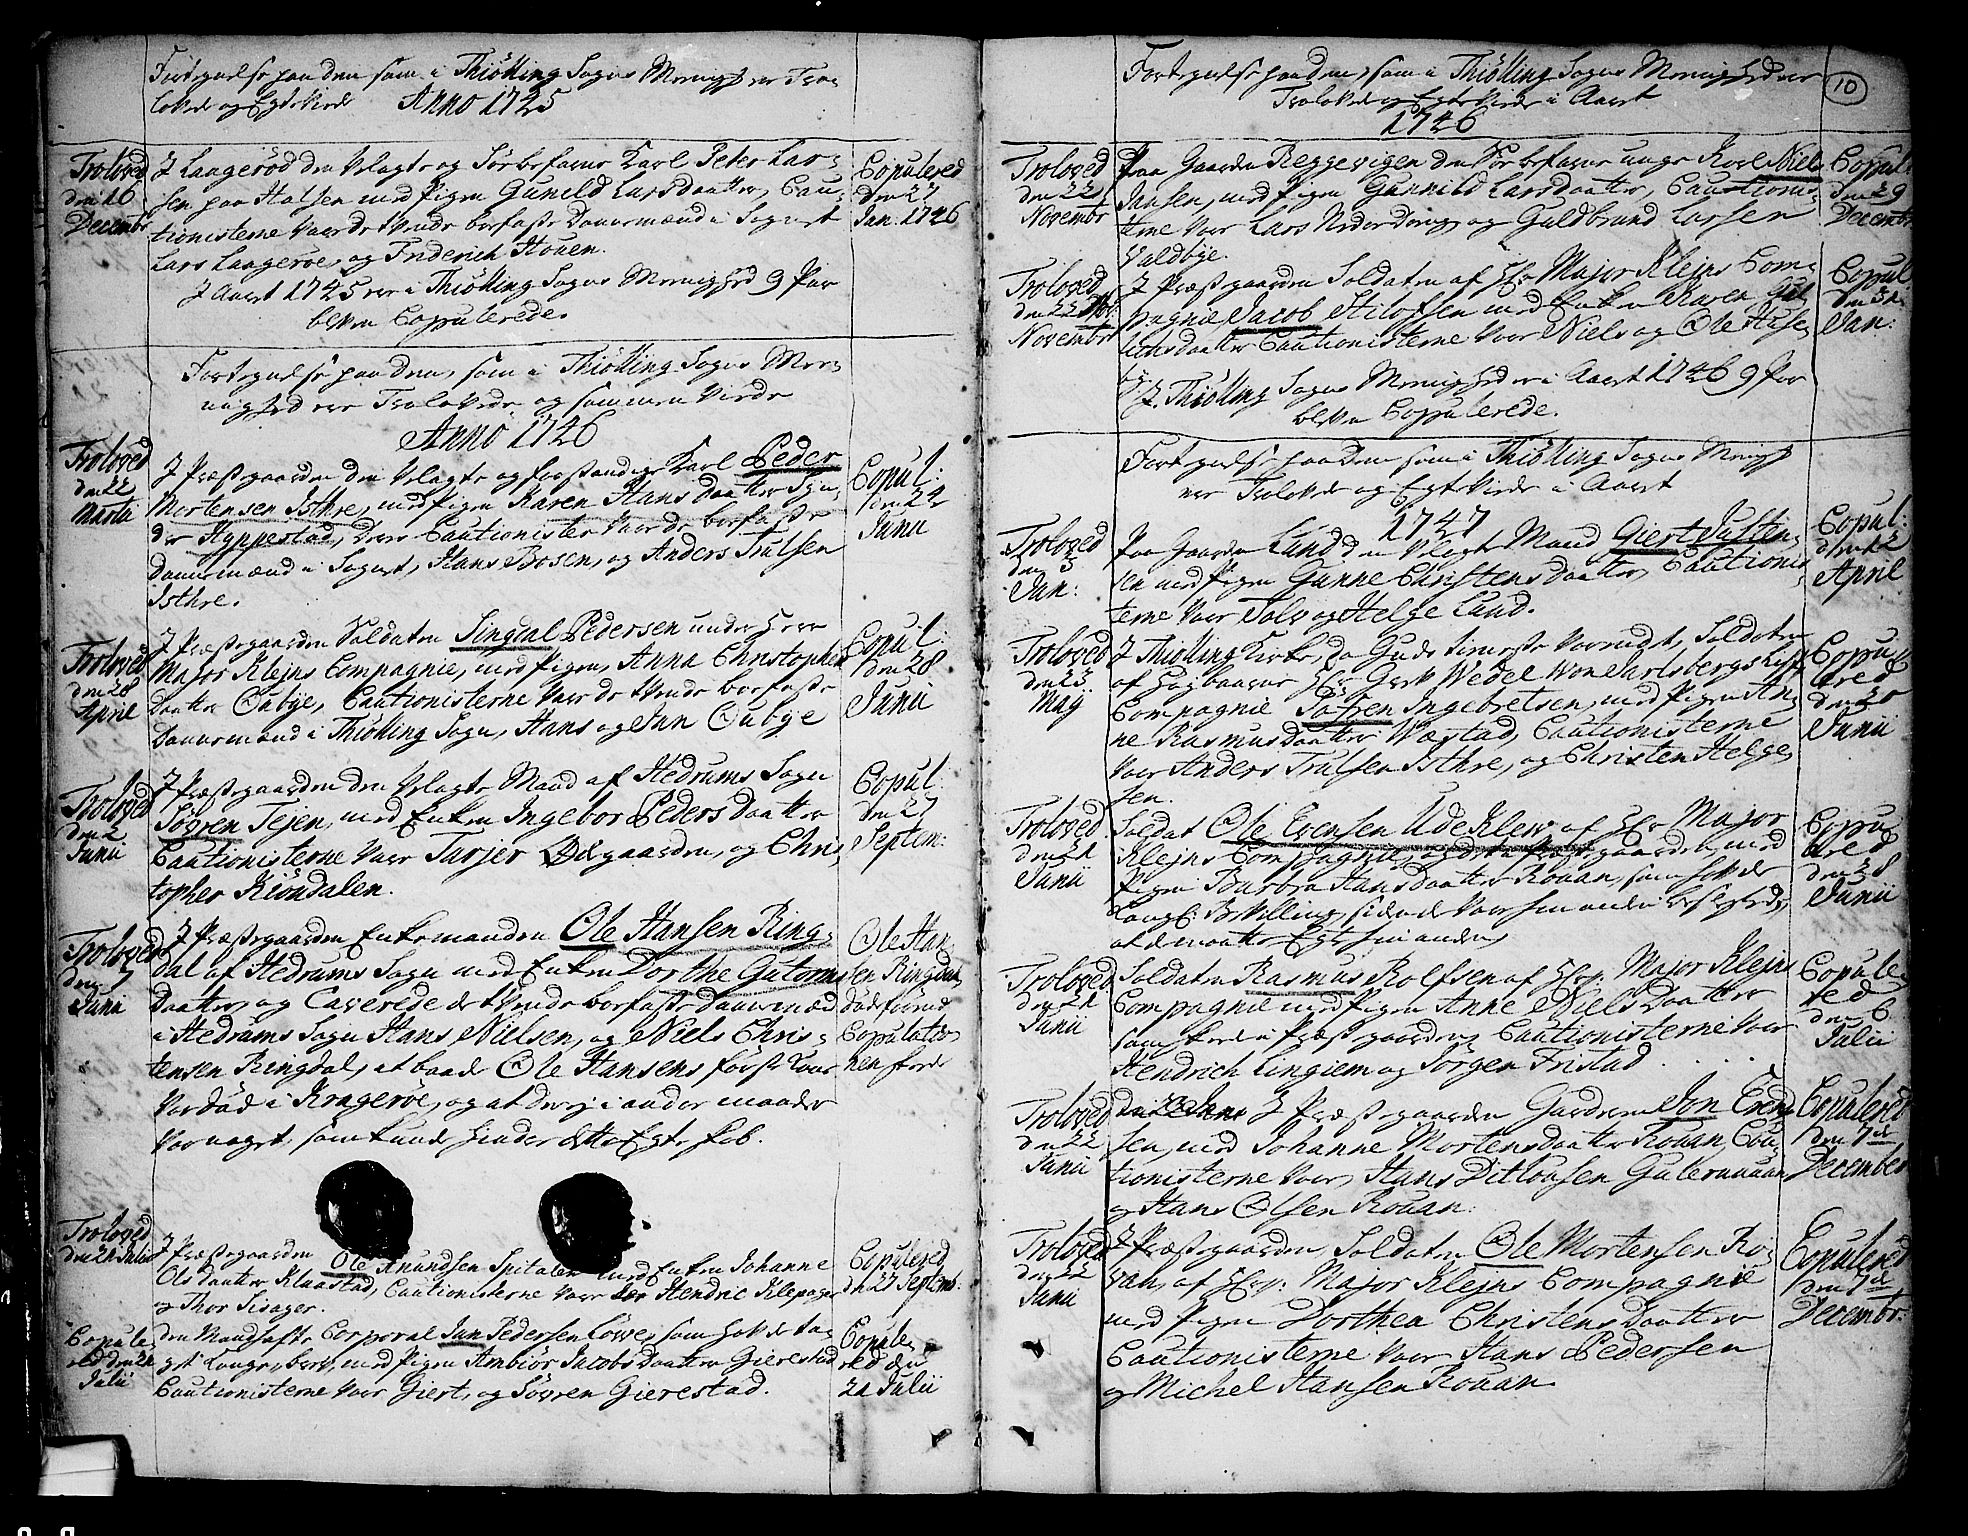 Fortegnelse paa dem som i Thiölling Sogns Menighed er Tro-
lovede og Egteviede Anno 1745
Troloved
den 16
Decembr
J Laagerød den Velagte og Søe befarne Karl Peter Lar-
sen paa Halsen med Pigen Gunild Larsdaatter, Cau-
tionisterne vare de tvende boefaste Dannemænd i Sognet
Lars Laagerøe, og Friderich Houen.
Copulered
den 27
Jan. 1746
J Aaret 1745 ere i Thiölling Sogns Menighed 9 Par
bleven Copulerede.
Fortegnelse paa dem, som i Thiölling Sogns Me-
nighed ere Trolovede og sammen viede
Anno 1746
Troloved
den 22
Martii
J Præstegaarden den Velagte og forstandige Karl Peder
Mortensen Isthre, med Pigen Karen Hans Daatter
der Hyppestad, Dere Cautionister vare de boefaste
Dannemænd i Sognet, Hans Bosen, og Anders Trulsen
Isthre.
Copul:
den 24
Junii
Troloved
den 28
April
J Præstegaarden Soldaten Singdal Pedersen under Herr
Major Klejns Compagnie, med Pigen, Anna Christophers
Daatter Oubye, Cautionisterne vare de tvende boefaste
Dannemænd i Thiölling Sogn, Hans og Jan Oubye
Copul:
den 28
Junii
Troloved
den 2
Junii
J Præstegaarden den Velagte Mand af Hedrums Sogn
Søfren Tejen, med Enken Ingebor Peders Daatter
Cautionisterne vare Tarjer Ødegaarden, og Chris
topher Kiöndalen.
Copul:
den 27
Septem:
Troloved
den 7
Junii
J Præstegaarden Enkemanden Ole Hansen Ring-
dal af Hedrums Sogn med Enken Dorthe Gutorms
Daatter, og Caverede de tvende boefaste Dannemænd
i Hedrums Sogn Hans Nielsen, og Niels Chris-
tensen Ringdal, at baade Ole Hansens første Kone
var død i Kragerøe, og at der ej i andre maader
var noget, som kunde hindre dette Egteskab.
Ole Han-
sen Ringdal
døde forend
Copulatio-
nen skeede
Troloved
den 21 Julii
J Præstegaarden Ole Anundsen Spitalen med Enken Johanne
Olsdaatter Klaastad, Cautionisterne vare Hendric Klepager
og Thor Sisager.
Copulered
den 27 Septemb.
Copule-
red den 21
Julii
den Mandhafte Corporal Jan Pedersen Löwe, som havde ta-
get Konge brev, med Pigen Ambiör Jacobs Daatter Gierestad
Cautionisterne vare Giert, og Søvren Gierestad.
Copule-
red den
21 Julii
10
Fortegnelse paa dem, som i Thiölling Sogns Menighed ere
Trolovede og Egteviede i Aaret
1746
Troloved
den 22
Novembr
Paa Gaarden Reggevigen den Søe befarne unge Karl Niels
Jansen, med Pigen Gunnild Larsdaatter, Cautionis-
terne vare Lars Neder Draug og Guldbrand Larsen
Valdbye.
Copul:
den 29
Decembr
Troloved
den 22
Novembr
J Præstegaarden Soldaten af Hr Major Klejns Com-
pagnie Jacob Stilofsen med Enken Karen Gul
Daatter Cautionisterne vare Niels og Ole Huse-
bÿ.
Copul:
Jan:
J Thiölling Sogns Menighed ere i Aaret 1746 9 Par
bleven Copulerede.
Fortegnelse paa dem som i Thiölling Sogns Menighed
ere Trolovede og Egteviede i Aaret
1747
Troloved
den 5
Jan:
Paa Gaarden Lund den Velagte Mand Giert Justen-
sen med Pigen Gunne Christens Daatter, Cautionis
terne vare Tolv og Helge Lund.
Copul:
den 12
April
Troloved
den 23
Maÿ
J Thiölling Kirke, da Guds tieneste var endt, Soldaten
af Høgbaarne Hr Grev Wedel Won Jarlsbergs Lif
Compagnie Søfren Ingebretsen, med Pigen An-
ne Rasmusdaatter Væstad, Cautionisterne
vare Anders Trulsen Isthre, og Christen Helge-
sen.
Copu-
lered
Junii
Troloved
den 21
Junii
Soldat Ole Evensen Ude Klew af Hr Major
Klejns Compagnie, med
Pigen Barbra Hans Daatter Rouan, som havde
Kongl: Bevilling, siden de vare hinanden beslegtede,
at de maatte Egte hinanden
Copu-
lered
den 28
Junii
Troloved
den 21
Junii
Soldaten Rasmus Rolfsen af Hr Major Klejns
Compagnie med Pigen Anne Niels Daatter
som skeede i Præstegaarden Cautionisterne vare
Hendrich Lingiem og Jörgen Fristad
Copule-
red
den 6
Julii
Troloved
den 22
Junii
J Præstegaarden Gardren Jon Evend-
sen, med Johanne Mortens Daatter Rouan, Cau-
tionisterne vare, Hans Ditlousen Guternauan
og Hans Olsen Rouan.
Copulered
den 7de
December
Troloved
den 22
Junii
J Præstegaarden, Soldaten Ole Mortensen Ro-
van, af Hr. Major Klejns Compagnie
med Pigen Dorthea Christens Daatter
Cautionisterne vare Hans Pedersen
og Michel Hansen Rouan
Copulered
den 7de
Decembr.